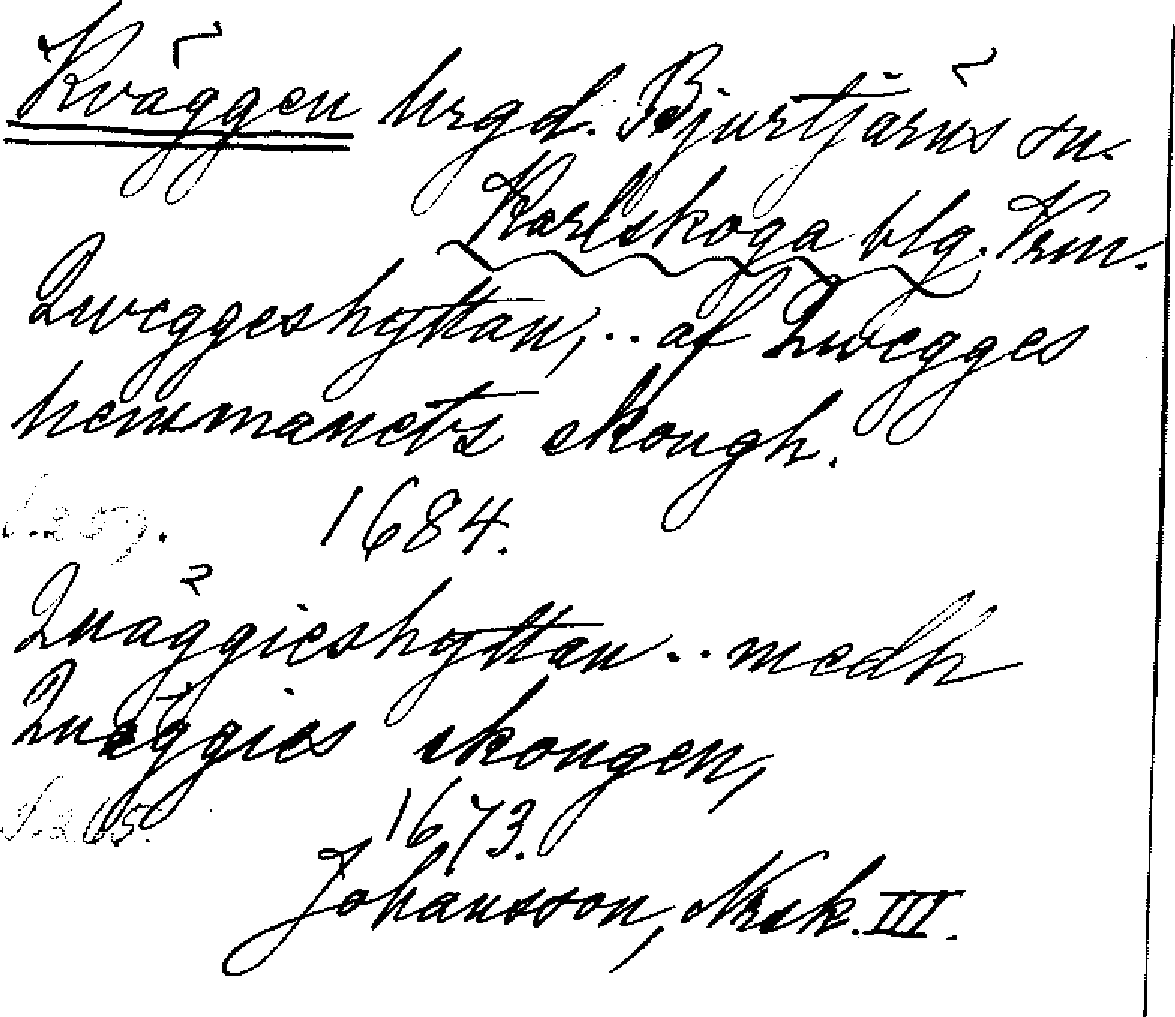 Kväggen hrgd. Bjurtjärns sn.
Karlskoga blg. Vrm.
Qweggeshyttan, .. af Qwegges
hemmanets skough.
S. 259. 1684.
Quäggieshyttan .. medh
Quäggies skougen,
S. 265. 1673.
Johansson, Nrsk. III.